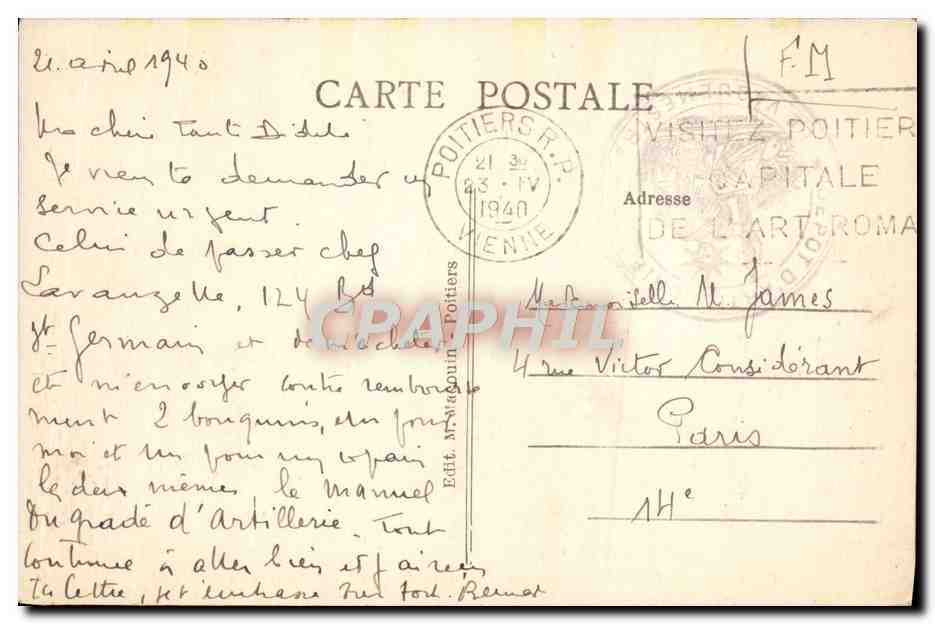 21 avril 1940
FM
CARTE POSTALE
Ma chère Tante
Je viens te demander un
service urgent.
Celui de passer chez
Lavauzelle, 124 Bd
St Germain et de m'acheter
et m'envoyer contre rembourse
ment 2 bouquins, un pour
moi et un pour un copain
les deux mêmes, le Manuel
du gradé d'Artillerie. Tout
continue à aller bien et j'ai reçu
ta lettre, je t'embrasse très fort.
POITIERS R.P.
21 30
23 - IV
1940
VIENNE
VISITEZ POITIER
CAPITALE
DE L'ART ROMA
Adresse
Mademoiselle M. James
4 rue Victor Considérant
Paris
14e
Edit. M. Magouin, Poitiers
CPAPHIL